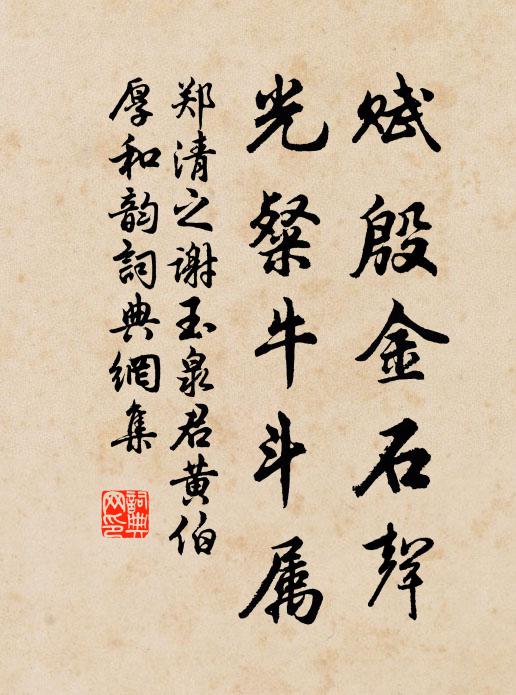 赋殷金石聲
光粲牛斗属
郑清之谢玉泉君黄伯
厚和韵詞典網集
詞典
网印